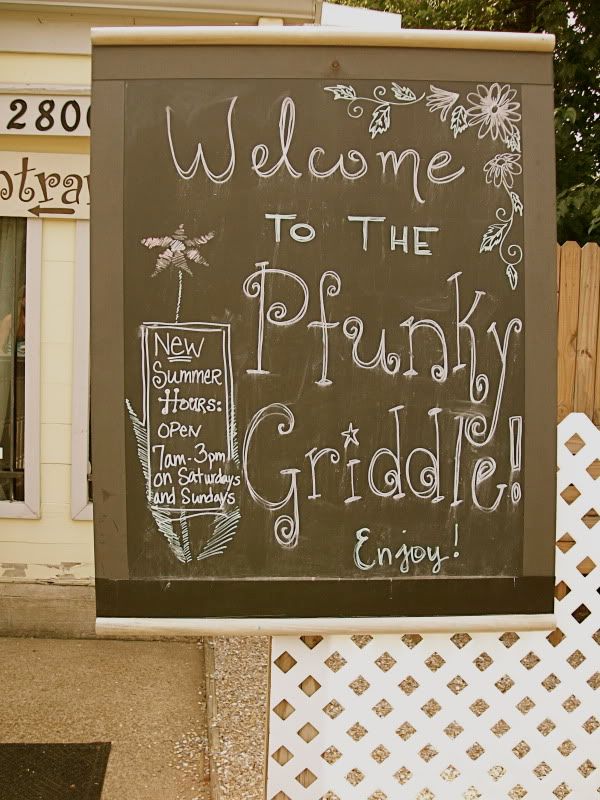 2800
Welcome
TO THE
Pfunky
Griddle!
NEW
Summer
Hours:
OPEN
7am-3pm
on Saturdays
and Sundays
Enjoy!